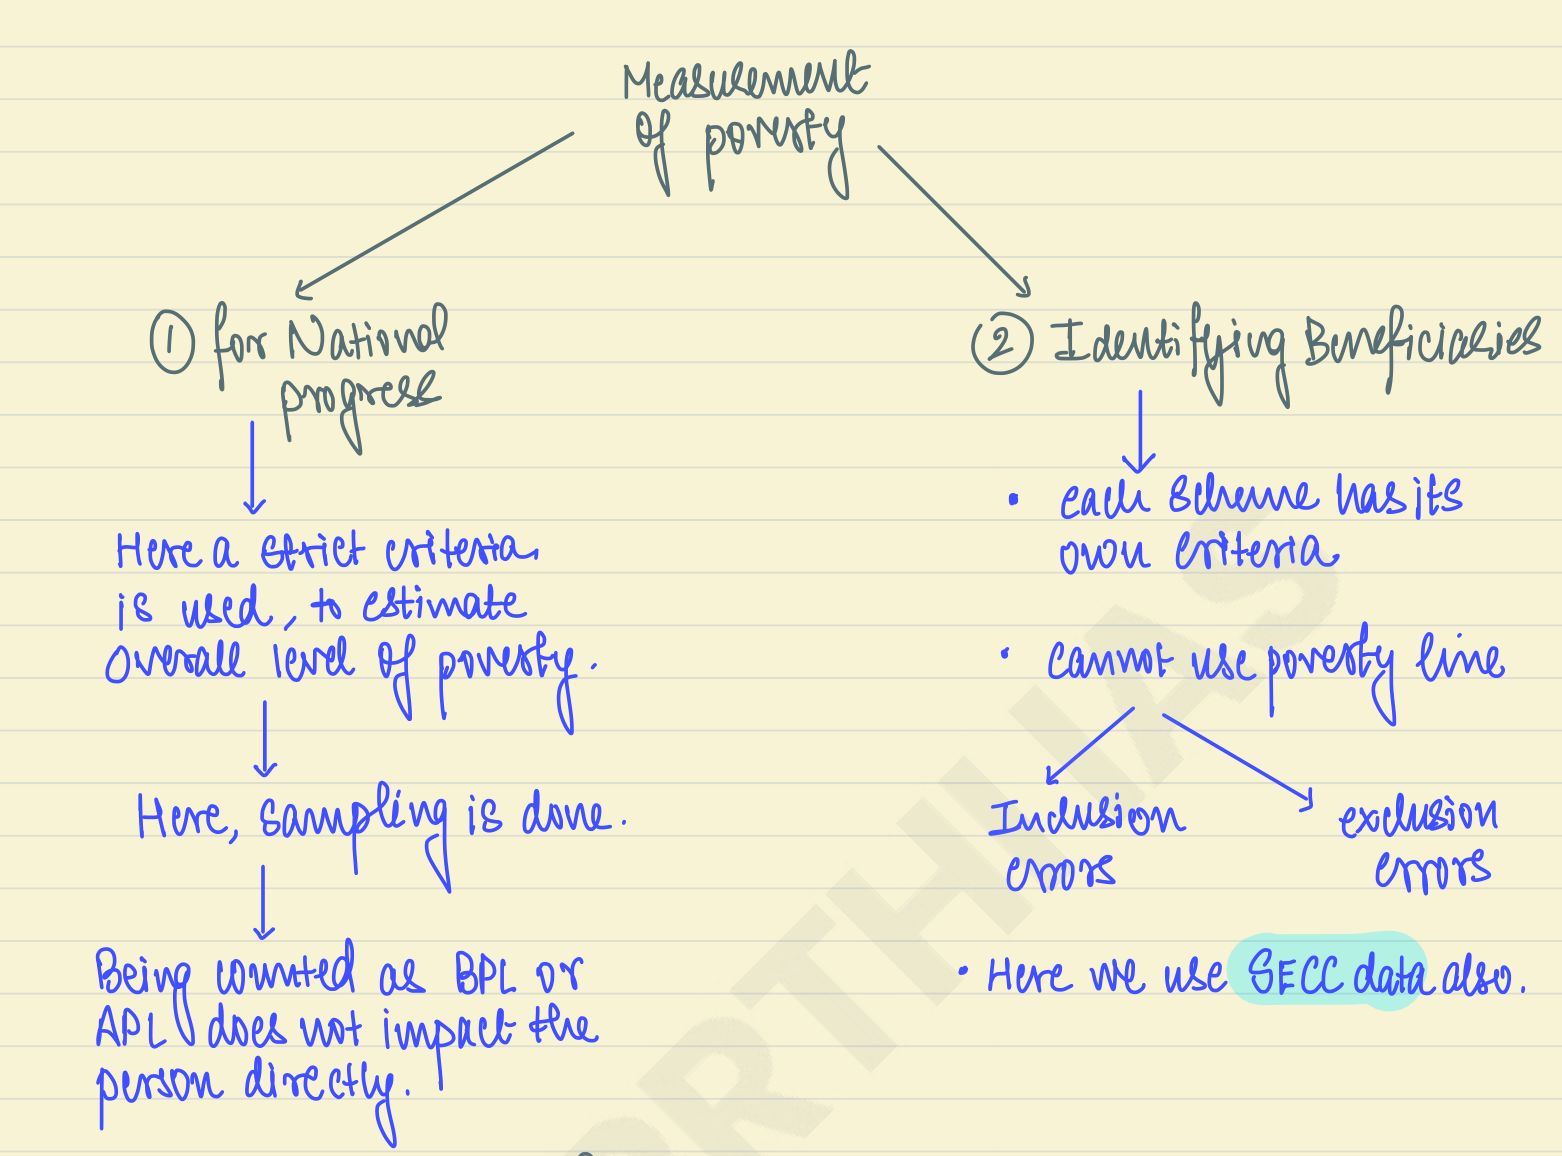 Measurement
of poverty
① for National
progress
Here a strict criteria
is used, to estimate
overall level of poverty.
Here, sampling is done.
Being counted as BPL or
APL does not impact the
person directly.
② Identifying Beneficiaries
• each scheme has its
own criteria
• cannot use poverty line
Inclusion
errors
exclusion
errors
• Here we use SECC data also.
RTH IAS